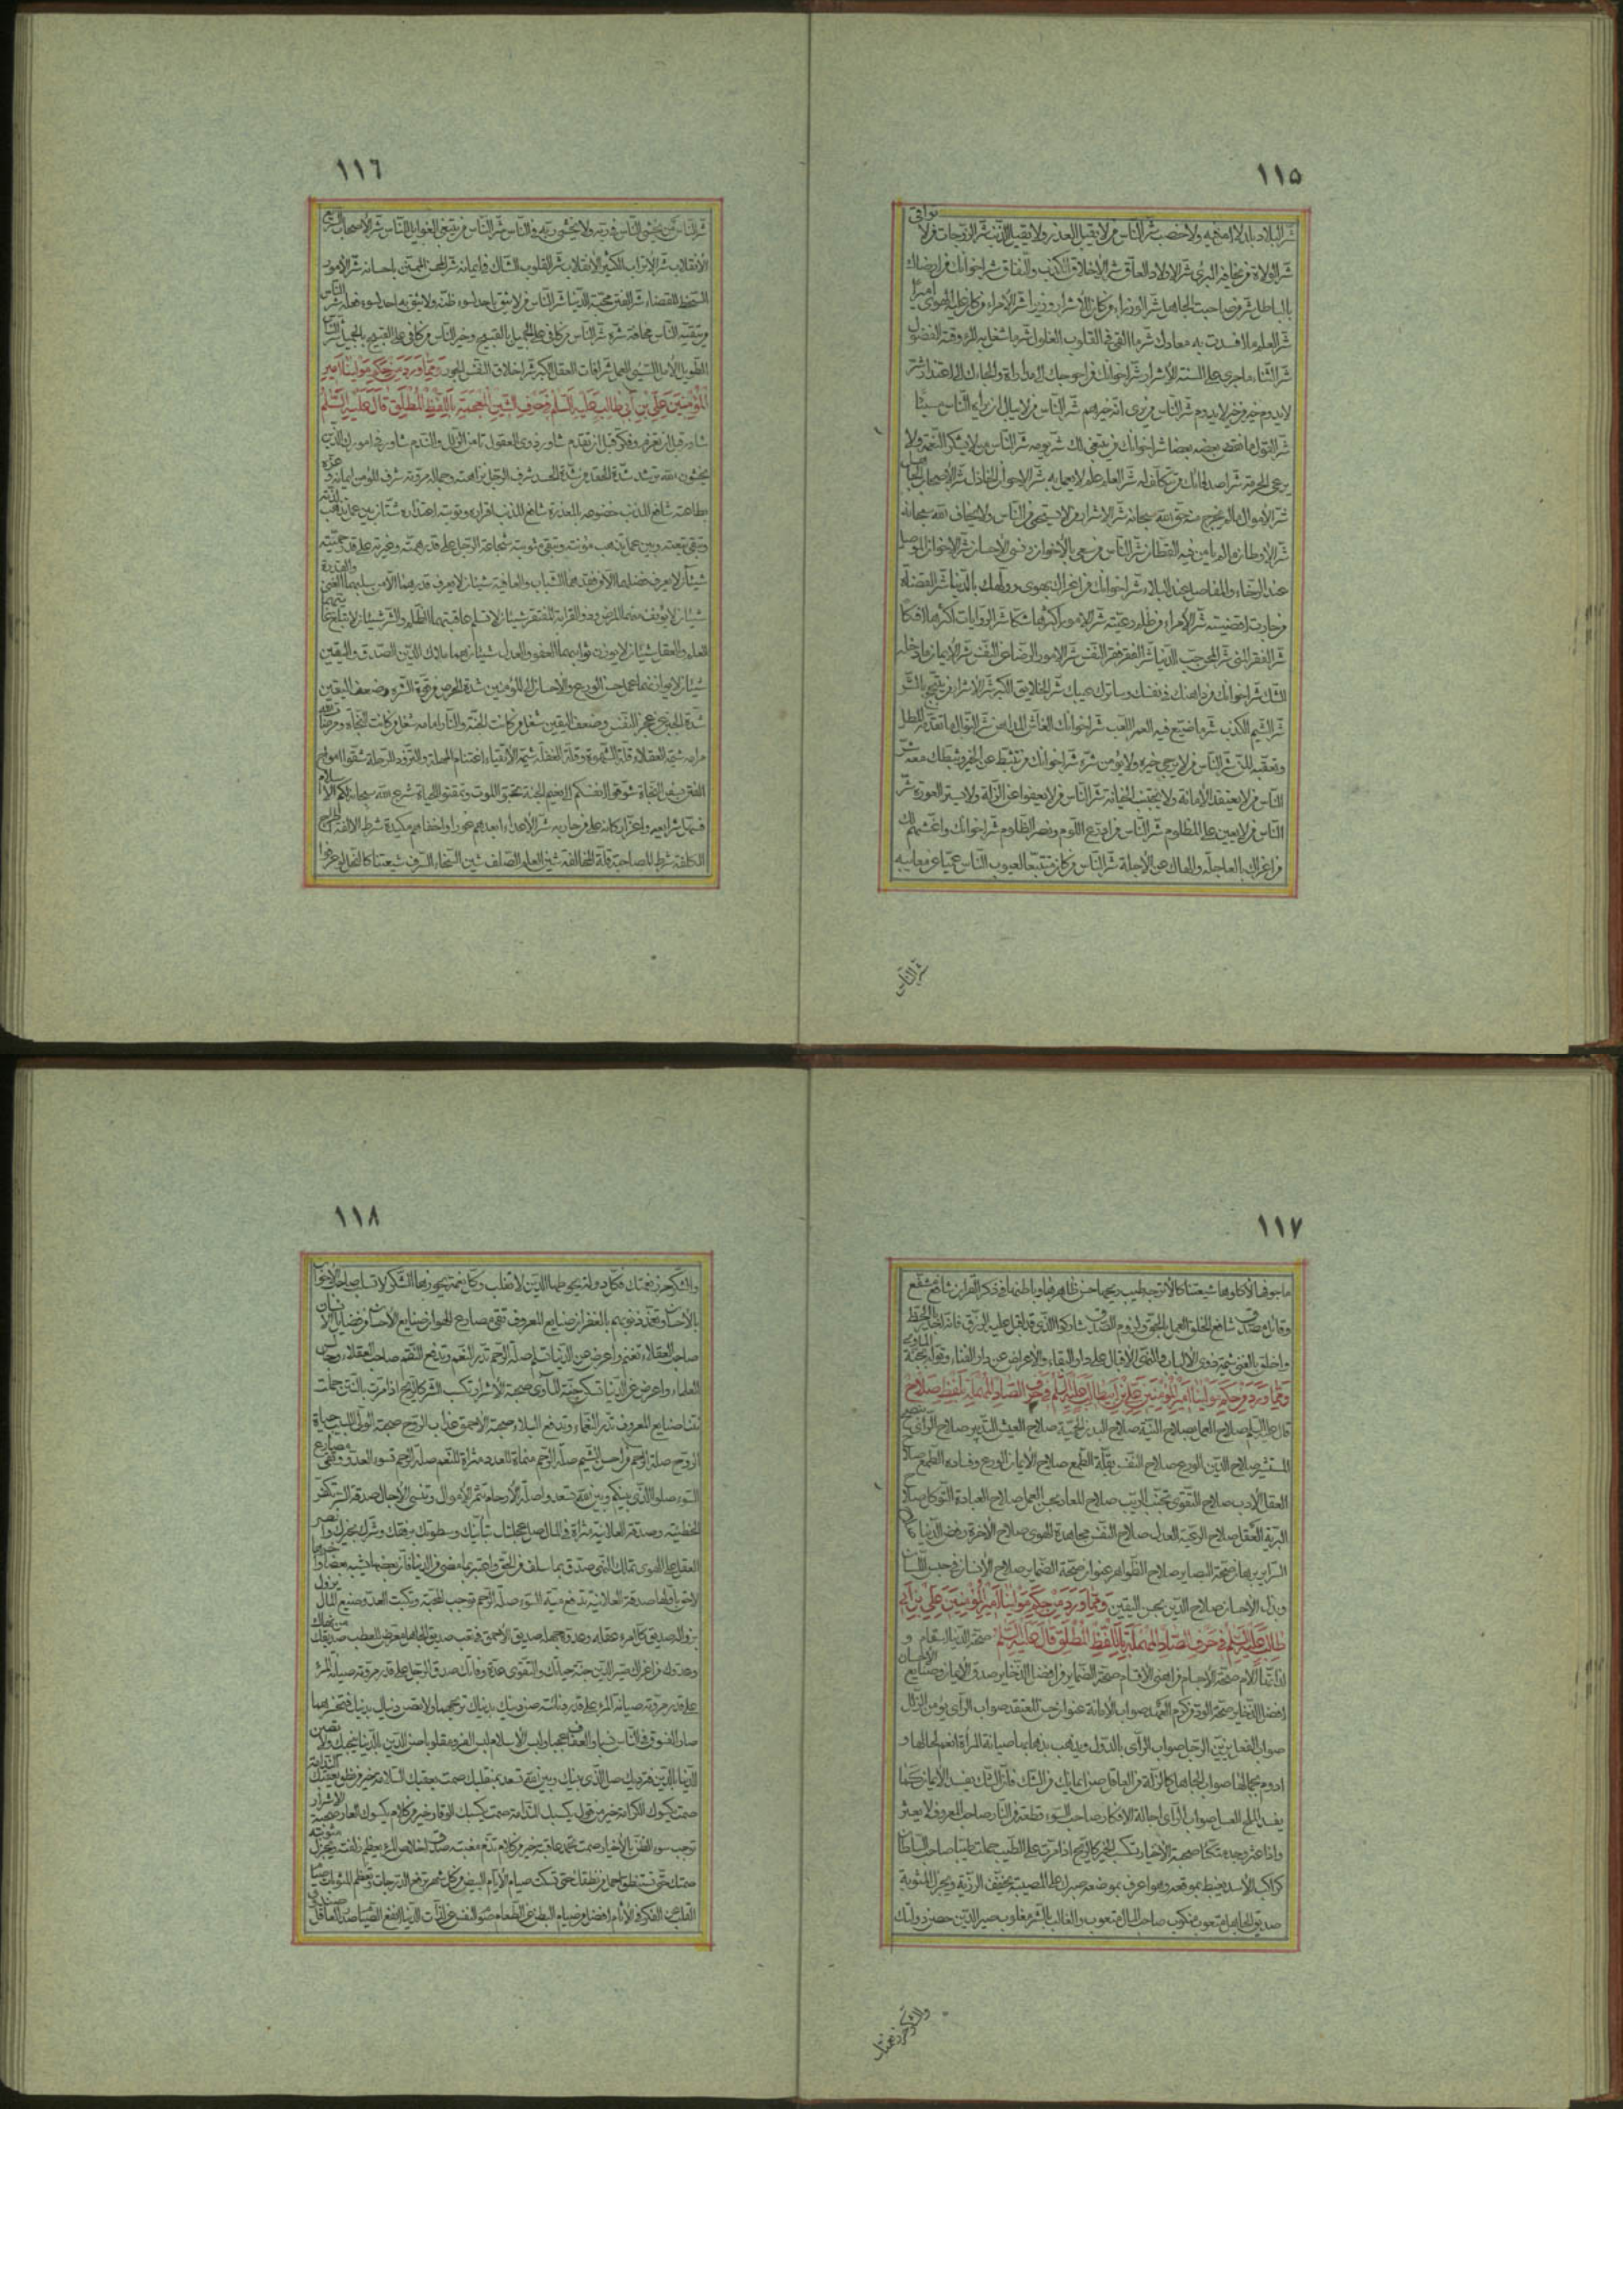 ١١٥
شر البلاد بلد لا امن فيه ولا خصب شر الناس من لا يقبل العذر ولا يقيل الذنب شر الزوجات من لا تواتى
شر الولاة من يخافه البرى شر الاولاد العاق شر الاخلاق الكذب والنفاق شر اخوانك من ارضاك
بالباطل شر من صاحبت الجاهل شر الوزراء من كان للاشرار وزيرا شر الامراء من كان عليه الهوى اميرا
شر العلم ما افسدت به معادك شر ما القى فى القلوب الغلول شر ما شغل به المرء وقته الفضول
شر الثناء ما جرى على السنة الاشرار شر اخوانك من احوجك الى مداراة والجاءك الى اعتذار شر
لا يدوم خير من خير لا يدوم شر الناس من يرى انه خيرهم شر الناس من لا يبالى ان يراه الناس مسيئا
شر القول ما نقض بعضه بعضا شر اخوانك من يبتغى لك شر يومه شر الناس من لا يشكر النعمة ولا
يرعى الحرمة شر اصدقائك من تتكلف له شر العلم علم لا يعمل به شر الاخوان الخاذل شر الاصحاب الجاهل
شر الاموال ما لم يخرج منه حق الله سبحانه شر الاشرار من لا يستحى من الناس ولا يخاف الله سبحانه
شر الاوطان ما لم يامن فيه القطان شر الناس من سعى بالاخوان ونسى الاحسان شر الاخوان المواصل
عند الرخاء والمفاصل عند البلاء شر اخوانك من اغراك بهوى وولهك بالدنيا شر القضاة
من جارت اقضيته شر الامراء من ظلم رعيته شر الامور اكثرها شكا شر الروايات اكثرها افكا
شر الفقر المنى شر المحن حب الدنيا شر الفقر فقر النفس شر الامور الرضا عن النفس شر الايمان ما دخله
الشك شر اخوانك من داهنك فى نفسك وساترك عيبك شر الخلايق الكبر شر الاشرار من يتبجح بالشر
شر الشيم الكذب شر ما ضيع فيه العمر اللعب شر اخوانك الغاش المداهن شر النوال ما تقدمه المطل
وتعقبه المن شر الناس من لا يرجى خيره ولا يؤمن شره شر اخوانك من تثبط عن الخير وثبطك معه شر
الناس من لا يعتقد الامانة ولا يجتنب الخيانة شر الناس من لا يعفو عن الزلة ولا يستر العورة شر
الناس من لا يعين على المظلوم شر الناس من ادرع اللوم ونصر الظلوم شر اخوانك واغشهم لك
من اغراك بالعاجلة والهاك عن الاجلة شر الناس من كان متتبعا لعيوب الناس عميا عن معايبه
شر الناس
١١٦
شر الناس من يخشى الناس فى ربه ولا يخشى ربه فى الناس شر الناس من يبتغى الغوايل للناس شر الاصحاب السريع
الانقلاب شر الاتراب الكثير الانقلاب شر القلوب الشاك فى ايمانه شر المحسن الممتن باحسانه شر الامور
التسخط للقضاء شر الفتن محبة الدنيا شر الناس من لا يثق باحد لسوء ظنه ولا يثق به احد لسوء فعله شر الناس
من يتقيه الناس مخافة شره شر الناس من كافى على الجميل بالقبيح وخير الناس من كافى على القبيح بالجميل شر الناس
الطويل الامل السيئ العمل شر آفات العقل الكبر شر اخلاق النفس الجور وَمِمَّا وَرَدَ مِنْ حِكَمِ مَوْلَينَا اَمِيرِ
الْمُؤْمِنِينَ عَلِيِّ بْنِ اَبِي طالِبٍ عَلَيْهِ السَّلَمُ فِي حَرْفِ الشِّينِ الْمُعْجَمَةِ بِاللَّفْظِ الْمُطْلَقِ قالَ عَلَيْهِ السَّلَمُ
شاور قبل ان تعزم وفكر قبل ان تقدم شاور ذوى العقول تامن الزلل والندم شاور فى امورك الذين
يخشون الله ترشد شدة الحقد من شدة الحسد شرف الرجل نزاهته وجماله مروته شرف المؤمن ايمانه وعزه
بطاعته شافع المذنب خضوعه بالمعذرة شافع المذنب اقراره وتوبته اعتذاره شتان بين عمل تذهب لذته
وتبقى تبعته وبين عمل تذهب مؤنته وتبقى مثوبته شجاعة الرجل على قدر همته وغيرته على قدر حميته
شيئان لا يعرف فضلهما الا من فقدهما الشباب والعافية شيئان لا يعرف قدرهما الا من سلبهما الغنى والقدرة
شيئان لا يؤنف منهما المرض وذو القرابة المفتقر شيئان لا تسلم عاقبتهما الظلم والشر شيئان لا تبلغ غايتهما
العلم والعقل شيئان لا يوزن ثوابهما العفو والعدل شيئان هما ملاك الدين الصدق واليقين
شيئان لا يوازنهما عمل حسن الورع والاحسان الى المؤمنين شدة الحرص من قوة الشره وضعف اليقين
شدة الجبن من عجز النفس وضعف اليقين شغل من كانت الجنة والنار امامه شغل من كانت النجاة ومرضاة الله
مرامه شيمة العقلاء قلة الشهوة وقلة الغفلة شيمة الاتقياء اغتنام المهلة والتزود للرحلة شقوا امواج
الفتن بسفن النجاة شوقوا انفسكم الى نعيم الجنة تحبوا الموت وتمقتوا الحياة شرع الله سبحانه لكم الاسلام
فسهل شرايعه واعز اركانه على من حاربه شر الاعداء ابعدهم غورا واخفاهم مكيدة شرط الالفة اطراح
الكلفة شرط المصاحبة قلة المخالفة شين العلم الصلف شين السخاء السرف شيعتنا كالنحل لو عرفوا
١١٧
ما جوفها لاكلوها شيعتنا كالاترجة طيب ريحها حسن ظاهرها وباطنها فى ذكر القران شافع مشفع
وقائل مصدق شافع الخلق العمل بالحق ولزوم الصدق شاركوا الذى قد اقبل عليه الرزق فانه اجدر بالحظ
واخلق بالغنى شيمة ذوى الالباب والنهى الاقبال على دار البقاء والاعراض عن دار الفناء والتوله بجنة الماوى
وَمِمَّا وَرَدَ مِنْ حِكَمِ مَوْلَينا اَمِيرِ الْمُؤْمِنِينَ عَلِيِّ بْنِ اَبِيطالِبٍ عَلَيْهِ السَّلَمُ فِي حَرْفِ الصّادِ الْمُهْمَلَةِ بِلَفْظِ صَلاحُ
قال عليه السلم صلاح العمل بصلاح النية صلاح البدن الحمية صلاح العيش التدبير صلاح الراى بنصح
المستشير صلاح الدين الورع صلاح النفس بقلة الطمع صلاح الايمان الورع وفساده الطمع صلاح
العقل الادب صلاح التقوى تجنب الريب صلاح المعاد بحسن العمل صلاح العبادة التوكل صلاح
البرية العقل صلاح الرعية العدل صلاح النفس مجاهدة الهوى صلاح الاخرة رفض الدنيا صلاح
السراير برهان صحة البصاير صلاح الظواهر عنوان صحة الضماير صلاح الانسان فى حبس اللسان
وبذل الاحسان صلاح الدين بحسن اليقين وَمِمَّا وَرَدَ مِنْ حِكَمِ مَوْلَينا اَمِيرِ الْمُؤْمِنِينَ عَلِيِّ بْنِ اَبِي
طالِبٍ عَلَيْهِ السَّلَمُ فِي حَرْفِ الصّادِ الْمُهْمَلَةِ بِاللَّفْظِ الْمُطْلَقِ قالَ عَلَيْهِ السَّلَمُ صحة الدنيا اسقام و
لذاتها آلام صحة الاجسام من اهنى الاقسام صحة الضماير من افضل الذخاير صدق الايمان وصنايع الاحسان
افضل الذخاير صحة الود من كرم العهد صواب الامانة عنوان حسن المعتقد صواب الراى يؤمن الزلل
صواب الفعل يزين الرجل صواب الراى بالدول ويذهب بذهابها صيانة المراة انعم لحالها و
ادوم لجمالها صواب الجاهل كالزلة من العاقل صن ايمانك من الشك فان الشك يفسد الايمان كما
يفسد الملح العسل صواب الراى باجالة الافكار صاحب السوء قطعة من النار صاحب المعروف لا يعثر
واذا عثر وجد متكا صحبة الاخيار تكسب الخير كالريح اذا مرت على الطيب حملت طيبا صاحب السلطان
كراكب الاسد يغبط بموقعه وهو اعرف بموضعه صبرك على المصيبة يخفف الرزية ويجزل المثوبة
صديق الجاهل متعوب منكوب صاحب المال متعوب والغالب بالشر مغلوب صير الدين حصن دولتك
والشكر حرز نعمتك
١١٨
والشكر حرز نعمتك فكل دولة يحوطها الدين لا تغلب وكل نعمة يحرزها الشكر لا تسلب صاحب الاخوان
بالاحسان وتغمد ذنوبهم بالغفران صنايع المعروف تقى مصارع الهوان صنايع الاحسان من فضايل الانسان
صاحب العقلاء تغنم واعرض عن الدنيا تسلم صلة الرحم تدر النعم وتدفع النقم صاحب العقلاء وجالس
العلماء واعرض عن الدنيا تسكن جنة الماوى صحبة الاشرار تكسب الشر كالريح اذا مرت بالنتن حملت
نتنا صنايع المعروف تدر النعماء وتدفع البلاء صحبة الاحمق عذاب الروح صحبة الولى اللبيب حياة
الروح صلة الرحم من احسن الشيم صلة الرحم منماة للعدد مثراة للنعم صلة الرحم تسوء العدو وتقى مصارع
السوء صلوا الذى بينكم وبين الله تسعدوا صلة الارحام تثمر الاموال وتنسئ الاجال صدقة السر تكفر
الخطيئة وصدقة العلانية مثراة فى المال صل عجلتك بتأنيك وسطوتك برفقك وشرك بخيرك وانصر
العقل على الهوى تملك النهى صدق بما سلف من الحق واعتبر بما مضى من الدنيا فان بعضها يشبه بعضا واخرها
لاحق باولها صدقة العلانية تدفع ميتة السوء صلة الرحم توجب المحبة وتكبت العدو صنيع المال يزول
بزواله صديق كل امرء عقله وعدوه جهله صديق الاحمق فى تعب صديق الجاهل معرض للعطب صديقك من نهاك
وعدوك من اغراك صير الدين جنة حياتك والتقوى عدة وفاتك صدق الرجل على قدر مروته صيانة المرء
على قدر مروته صيانة المرء على قدر ديانته صن دينك بدنياك تربحهما ولا تصن دنياك بدينك فتخسرهما
صار الفسوق فى الناس نسبا والعفاف عجبا ولبس الاسلام لبس الفرو مقلوبا صن الدين بالدنيا ينجيك ولا تصن
الدنيا بالدين فترديك صل الذى بينك وبين الله تسعد بمنقلبك صمت يعقبك السلامة خير من نطق يعقبك الندامة
صمت يكسوك الكرامة خير من قول يكسبك الندامة صمت يكسبك الوقار خير من كلام يكسوك العار صحبة الاشرار
توجب سوء الظن بالاخيار صمت تحمد عاقبته خير من كلام تذم مغبته صدق اخلاص المرء يعظم زلفته ويجزل مثوبته
صمتك حتى تستنطق اجمل من نطقك حتى تسكت صيام الايام البيض من كل شهر ترفع الدرجات وتعظم المثوبات صيام
القلب عن الفكر فى الاثام افضل من صيام البطن عن الطعام صوم النفس عن لذات الدنيا انفع الصيام صدر العاقل صندوق